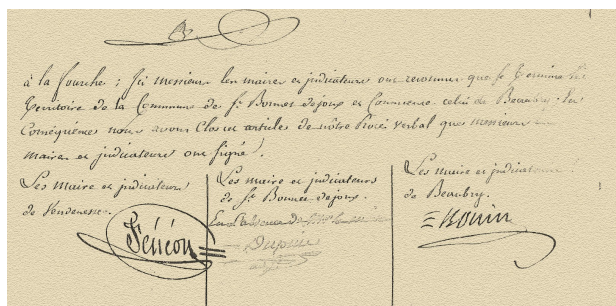 à la fourche ; Ici messieurs les maires et indicateurs ont reconnu que se termine le
territoire de la Commune de St. Bonnet dejoux et Commence celui de Beaubry. En
Conséquence nous avons Clos cet article de notre Procès verbal que messieurs
maires et indicateurs ont signé.
Les maire et indicateurs
de Vendenesse.
Fénéon
Les maire et indicateurs
de St. Bonnet dejoux.
En l'absence de
Dupuis
adjt
Les maire et indicateurs
de Beaubry.